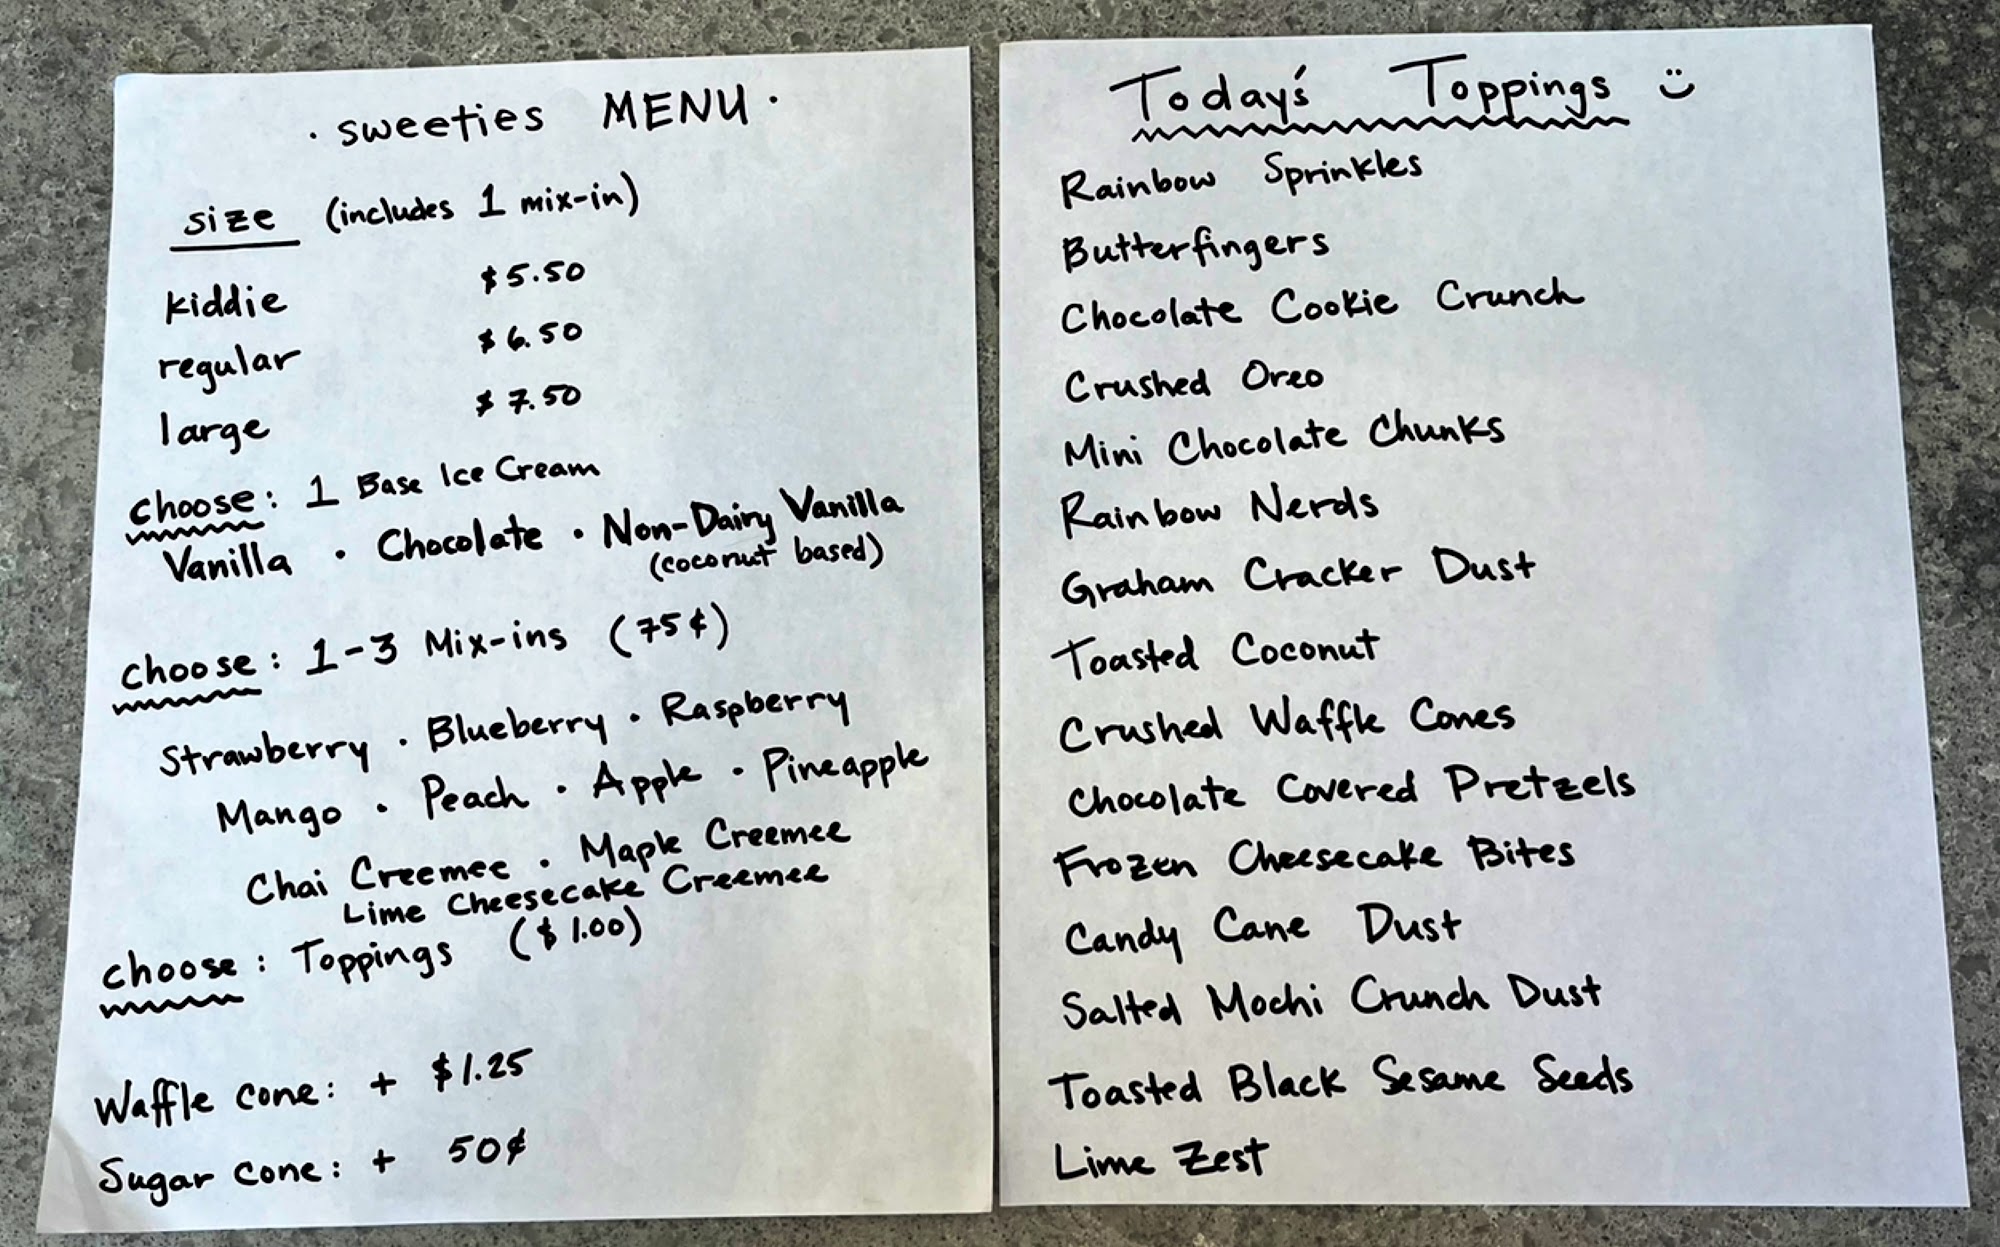 · sweeties MENU ·
size (includes 1 mix-in)
kiddie $5.50
regular $6.50
large $7.50
choose: 1 Base Ice Cream
Vanilla · Chocolate · Non-Dairy Vanilla
(coconut based)
choose: 1-3 Mix-ins (75¢)
Strawberry · Blueberry · Raspberry
Mango · Peach · Apple · Pineapple
Chai Creemee · Maple Creemee
Lime Cheesecake Creemee
choose: Toppings ($1.00)
Waffle cone: + $1.25
Sugar cone: + 50¢
Today's Toppings :)
Rainbow Sprinkles
Butterfingers
Chocolate Cookie Crunch
Crushed Oreo
Mini Chocolate Chunks
Rainbow Nerds
Graham Cracker Dust
Toasted Coconut
Crushed Waffle Cones
Chocolate Covered Pretzels
Frozen Cheesecake Bites
Candy Cane Dust
Salted Mochi Crunch Dust
Toasted Black Sesame Seeds
Lime Zest